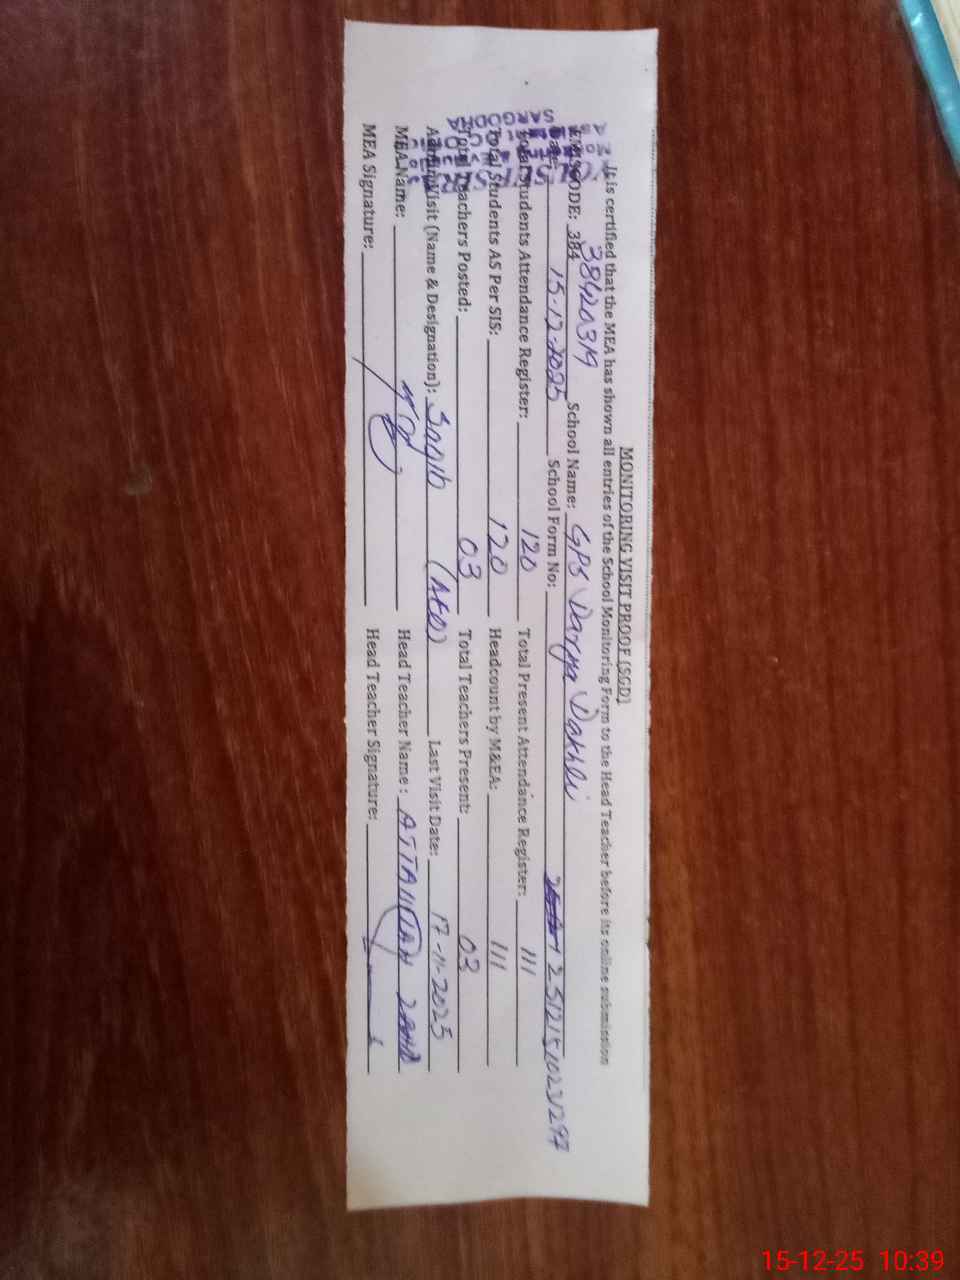 MONITORING VISIT PROOF (SGD)
It is certified that the MEA has shown all entries of the School Monitoring Form to the Head Teacher before its online submission
38420319
EMIS CODE: 384 School Name: GPS Darya Dakhli
Date: 15-12-2025 School Form No: 25121510231297
Total Students Attendance Register: 120 Total Present Attendance Register: 111
Total Students AS Per SIS: 120 Headcount by M&EA: 111
Total Teachers Posted: 03 Total Teachers Present: 03
Admin Visit (Name & Designation): (AEO) Last Visit Date: 17-11-2025
MEA Name: Head Teacher Name:
MEA Signature: Head Teacher Signature:
SARGODHA
15-12-25 10:39